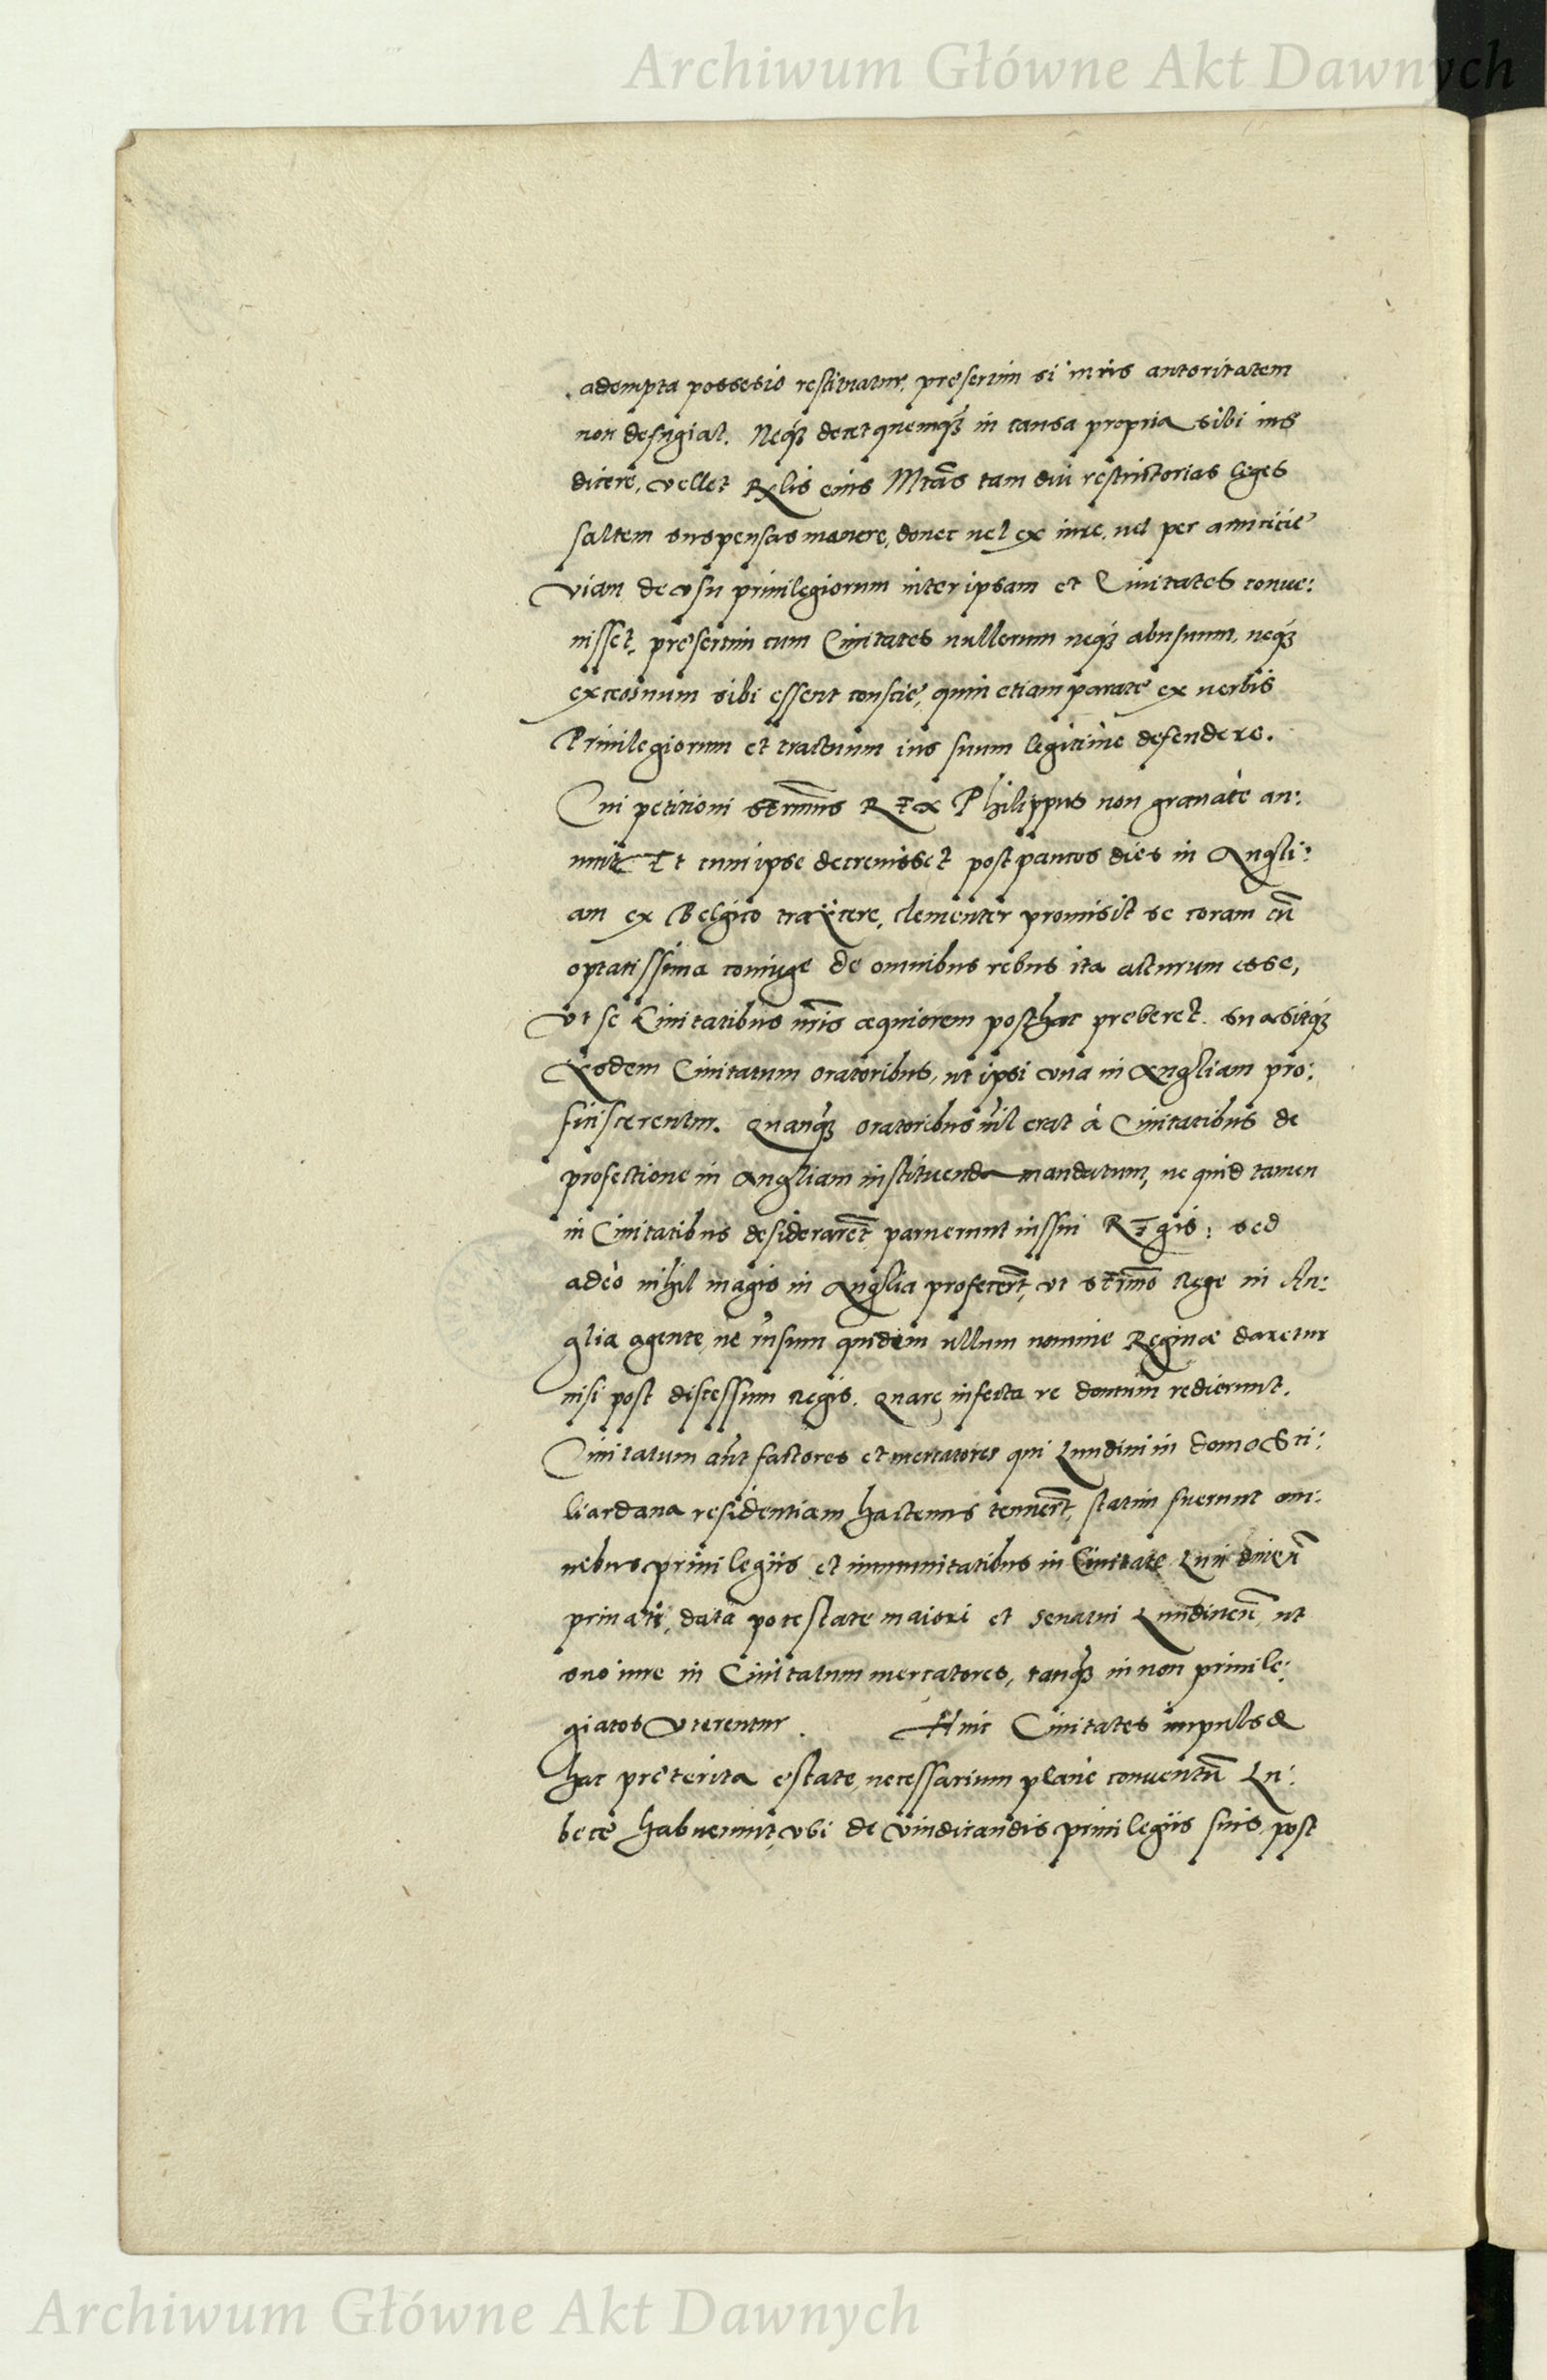 Archiwum Główne Akt Dawnych
adempta possesio restituatur, presertim si iuris autoritatem
non defugiat. Neq́ꝫ decet quemq́ꝫ in causa propria sibi ius
dicere, vellet Rx̱lis eius Mtās tam diu restrictorias leges
saltem suspensas manere, donec uel ex iure, uel per amicicie
viam de vsu priuilegiorum inter ipsam et Ciuitates conue:
nisset, presertim cum Ciuitates nullorum neq́ꝫ abusuum, neq́ꝫ
excessuum sibi essent conscie, quin etiam parate ex uerbis
Priuilegiorum et tractuum ius suum legitime defendere.
Cui petitioni sermūs Rex Philippus non grauatè an:
nuit Et cum ipse decreuisset post paucos dies in Angli:
am ex Belgico traijcere, clementer promisit se coram cū
optatissima coniuge de omnibus rebus ita acturum esse,
vt se Ciuitatibus nr̄is æquiorem posthac preberet. suasitq́ꝫ
Eisdem Ciuitatum oratoribus, ut ipsi vna in Angliam pro:
ficiscerentur. Quanq́ꝫ oratoribus nil erat à Ciuitatibus de
profectione in Angliam instituenda mandatum, ne quid tamen
in Ciuitatibus desiderarēt paruerunt iussui Regis: sed
adeò nihil magis in Anglia profecerūt, vt serīmo Rege in An:
glia agente, ne uisum quidem ullum nomine Reginæ daretur
nisi post discessum Regis. Quare infecta re domum redierunt.
Ciuitatum aūt factores et mercatores qui Lundini in domo Sti:
liardana residentiam hactenus tenuerūt, statim fuerunt om:
nebus priuilegijs et immunitatibus in Ciuitate Lundineñ
priuati, data potestate maiori et senatui Lundineñ, ut
suo iure in Ciuitatum mercatores, tanq́ꝫ in non priuile:
giatos vterentur. Hinc Ciuitates impulsæ
hac preterita estate, necessarium planè conuentū Lu:
bece habuerunt, vbi de vindicandis priuilegijs suis, post
Archiwum Główne Akt Dawnych